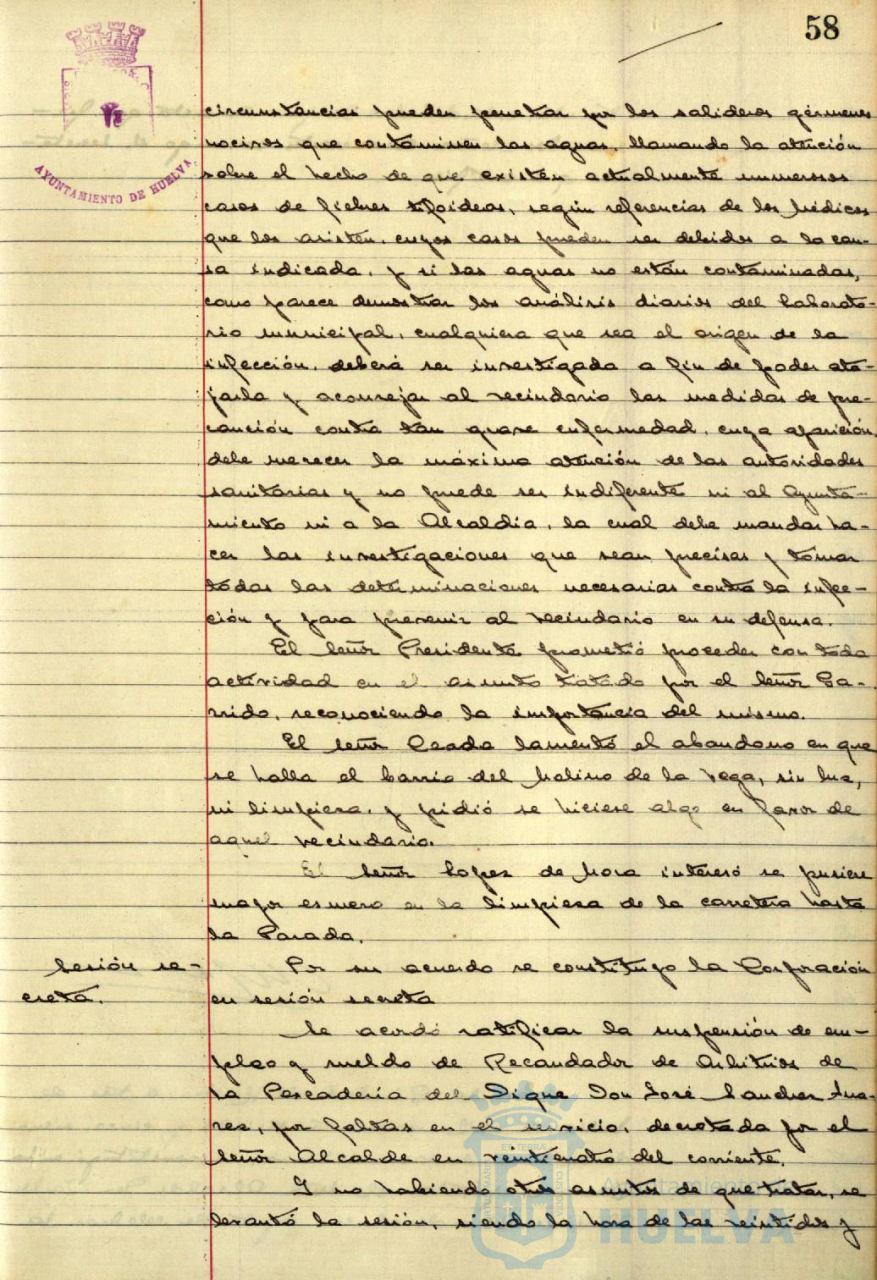 58
AYUNTAMIENTO DE HUELVA
circunstancias pueden penetrar por los salideros gérmenes
nocivos que contaminen las aguas, llamando la atención
sobre el hecho de que existen actualmente numerosos
casos de fiebres tifoideas, según referencias de los Médicos
que los asisten, cuyos casos pueden ser debidos a la cau-
sa indicada, y si las aguas no están contaminadas,
como parece demostrar los análisis diarios del Laborato-
rio municipal, cualquiera que sea el origen de la
infección, deberá ser investigada a fin de poder ata-
jarla y aconsejar al vecindario las medidas de pre-
caución contra tan grave enfermedad, cuya aparición
debe merecer la máxima atención de las autoridades
sanitarias y no puede ser indiferente ni al Ayunta-
miento ni a la Alcaldía, la cual debe mandar ha-
cer las investigaciones que sean precisas y tomar
todas las determinaciones necesarias contra la infec-
ción y para prevenir al vecindario en su defensa.
El señor Presidente prometió proceder con toda
actividad en el asunto tratado por el señor Ga-
rrido, reconociendo la importancia del mismo.
El señor lamentó el abandono en que
se halla el barrio del Molino de la Vega, sin luz,
ni limpieza, y pidió se hiciese algo en favor de
aquel vecindario.
El señor Lopez de Mora interesó se pusiere
mayor esmero en la limpieza de la carretera hasta
la Parada.
Sesión se-
creta.
Por su acuerdo se constituyo la Corporación
en sesión secreta
Se acordó ratificar la suspensión de em-
pleo y sueldo de Recaudador de Arbitrios de
la Pescadería del Dique Don José Sanchez Sua-
rez, por faltas en el servicio, decretada por el
señor Alcalde en veinticuatro del corriente.
Y no habiendo otros asuntos de que tratar, se
levantó la sesión, siendo la hora de las veintidos y
Ayuntamiento
HUELVA